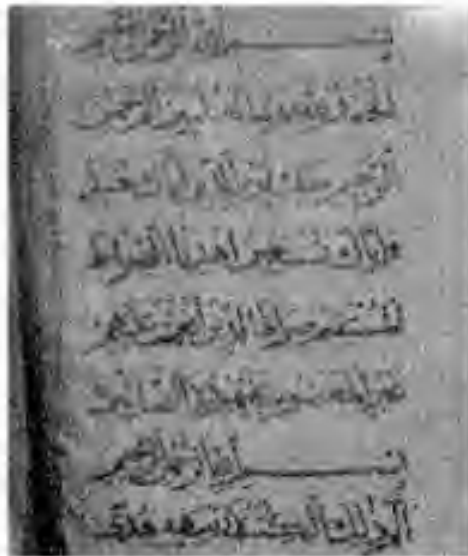 بسم الله الرحمن الرحيم
الحمد لله رب العالمين الرحمن
الرحيم ملك يوم الدين اياك نعبد
واياك نستعين اهدنا الصراط
المستقيم صراط الذين انعمت عليهم
غير المغضوب عليهم ولا الضالين
بسم الله الرحمن الرحيم
الم ذلك الكتب لا ريب فيه هدى